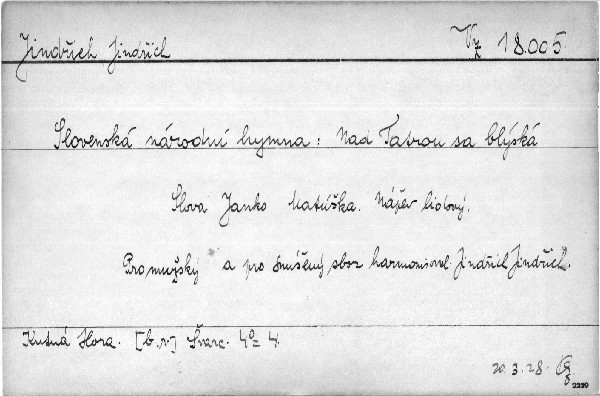 Jindřich Jindřich 18.005.
Slovenská národní hymna: Nad Tatrou sa blýská
Slova Janko Matúška. Nápěv lidový.
Pro mužský a pro smíšený sbor harmonisoval Jindřich Jindřich.
Kutná Hora. [b.r.] Švarc. 4° 4
20.3.28.
2229